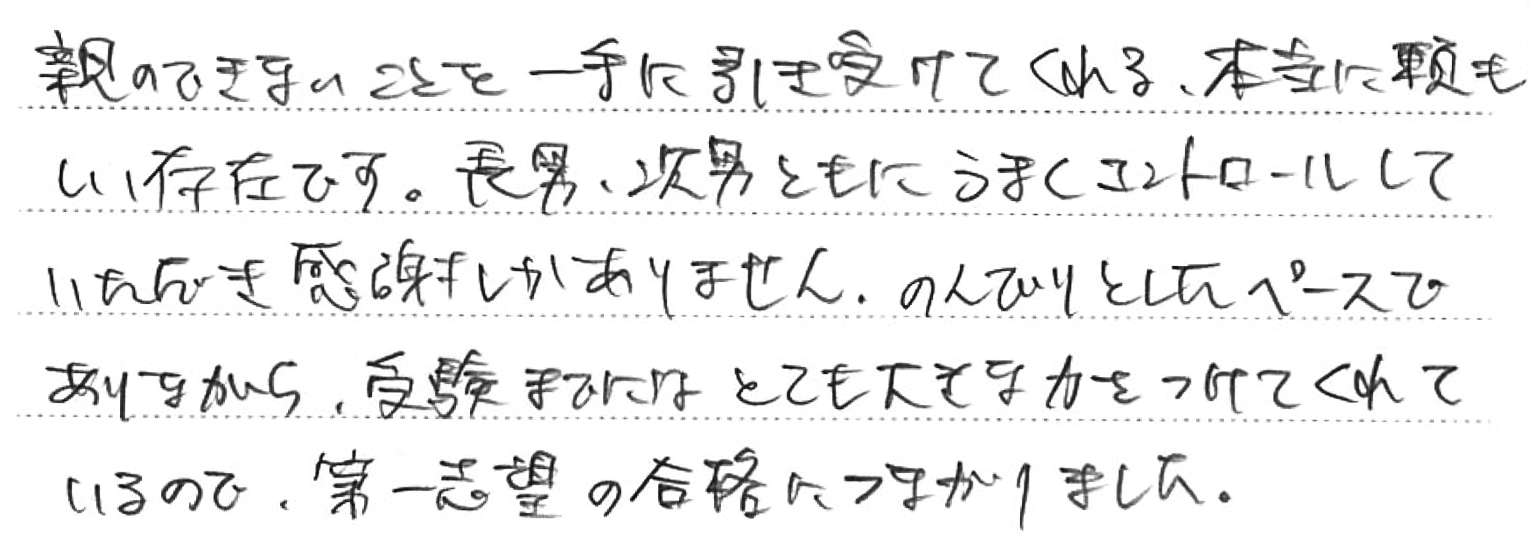 親のできないことを一手に引き受けてくれる、本当に頼も
しい存在です。長男、次男ともにうまくコントロールして
いただき感謝しかありません。のんびりとしたペースで
ありながら、受験までにはとても大きな力をつけてくれて
いるので、第一志望の合格につながりました。